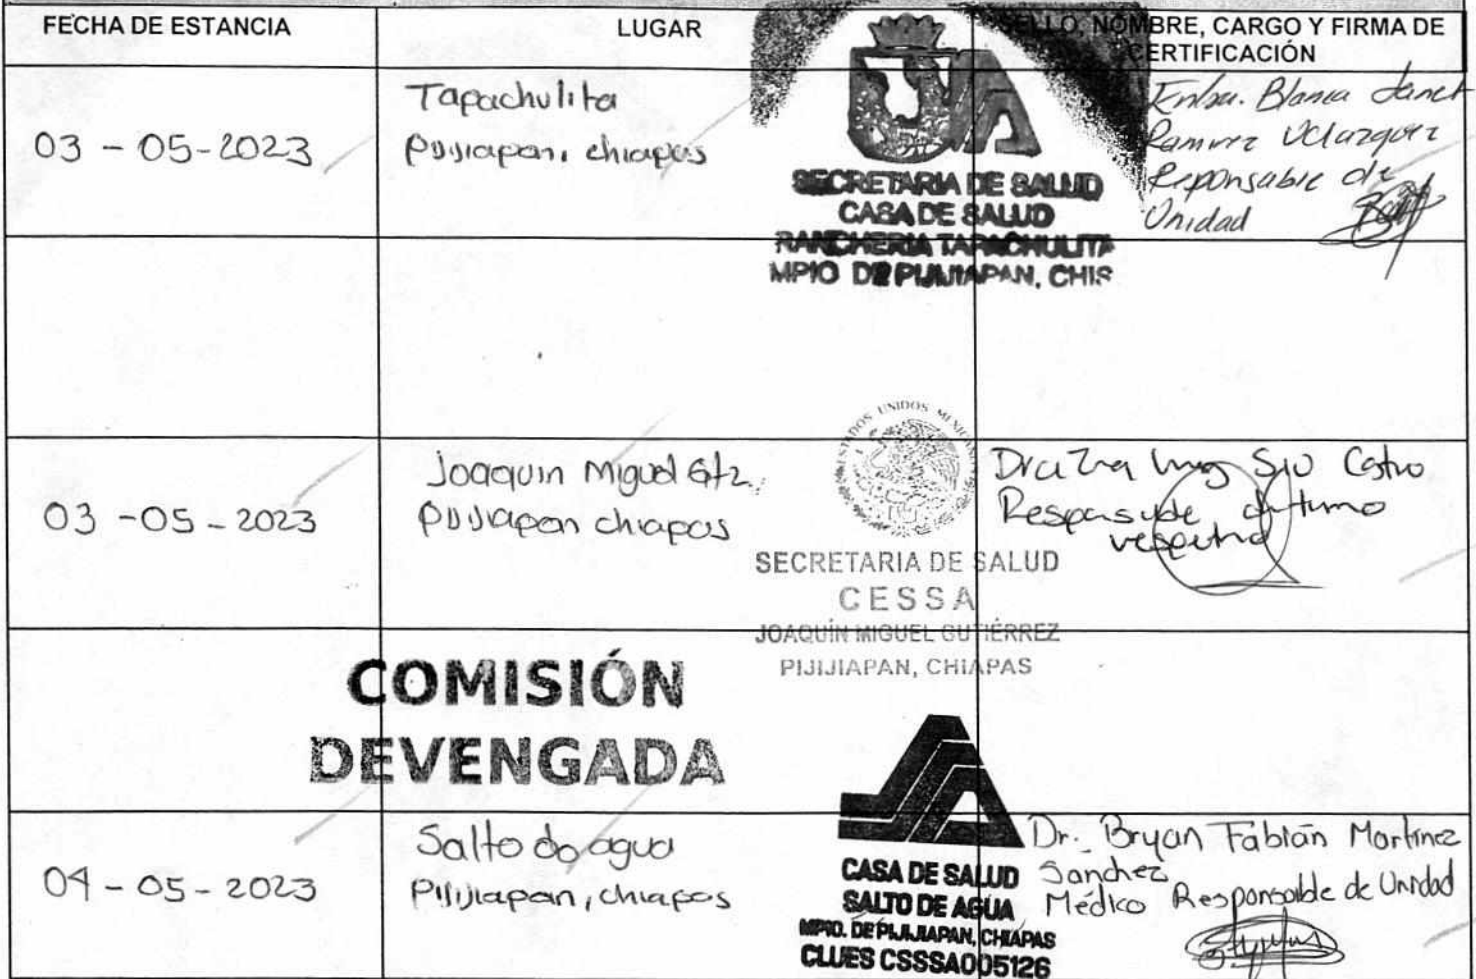 FECHA DE ESTANCIA
LUGAR
SELLO, NOMBRE, CARGO Y FIRMA DE
CERTIFICACIÓN
03 - 05-2023
Tapachulita
Pijijiapan, chiapas
SECRETARIA DE SALUD
CASA DE SALUD
RANCHERIA TAPACHULITA
MPIO DE PIJIJIAPAN, CHIS
Blanca Janet
Ramirez Velazquez
Reponsable de
Unidad
03 - 05 - 2023
Joaquin Miguel Gtz.
Pijijiapan chiapas
ESTADOS UNIDOS MEXICANOS
SECRETARIA DE SALUD
CESSA
JOAQUÍN MIGUEL GUTIÉRREZ
PIJIJIAPAN, CHIAPAS
Castro
Responsable de turno
COMISIÓN
DEVENGADA
04 - 05 - 2023
Salto de agua
Pijijiapan, chiapas
CASA DE SALUD
SALTO DE AGUA
MPIO. DE PIJIJIAPAN, CHIAPAS
CLUES CSSSA005126
Dr. Bryan Fabián Martínez
Sanchez
Médico Responsable de Unidad